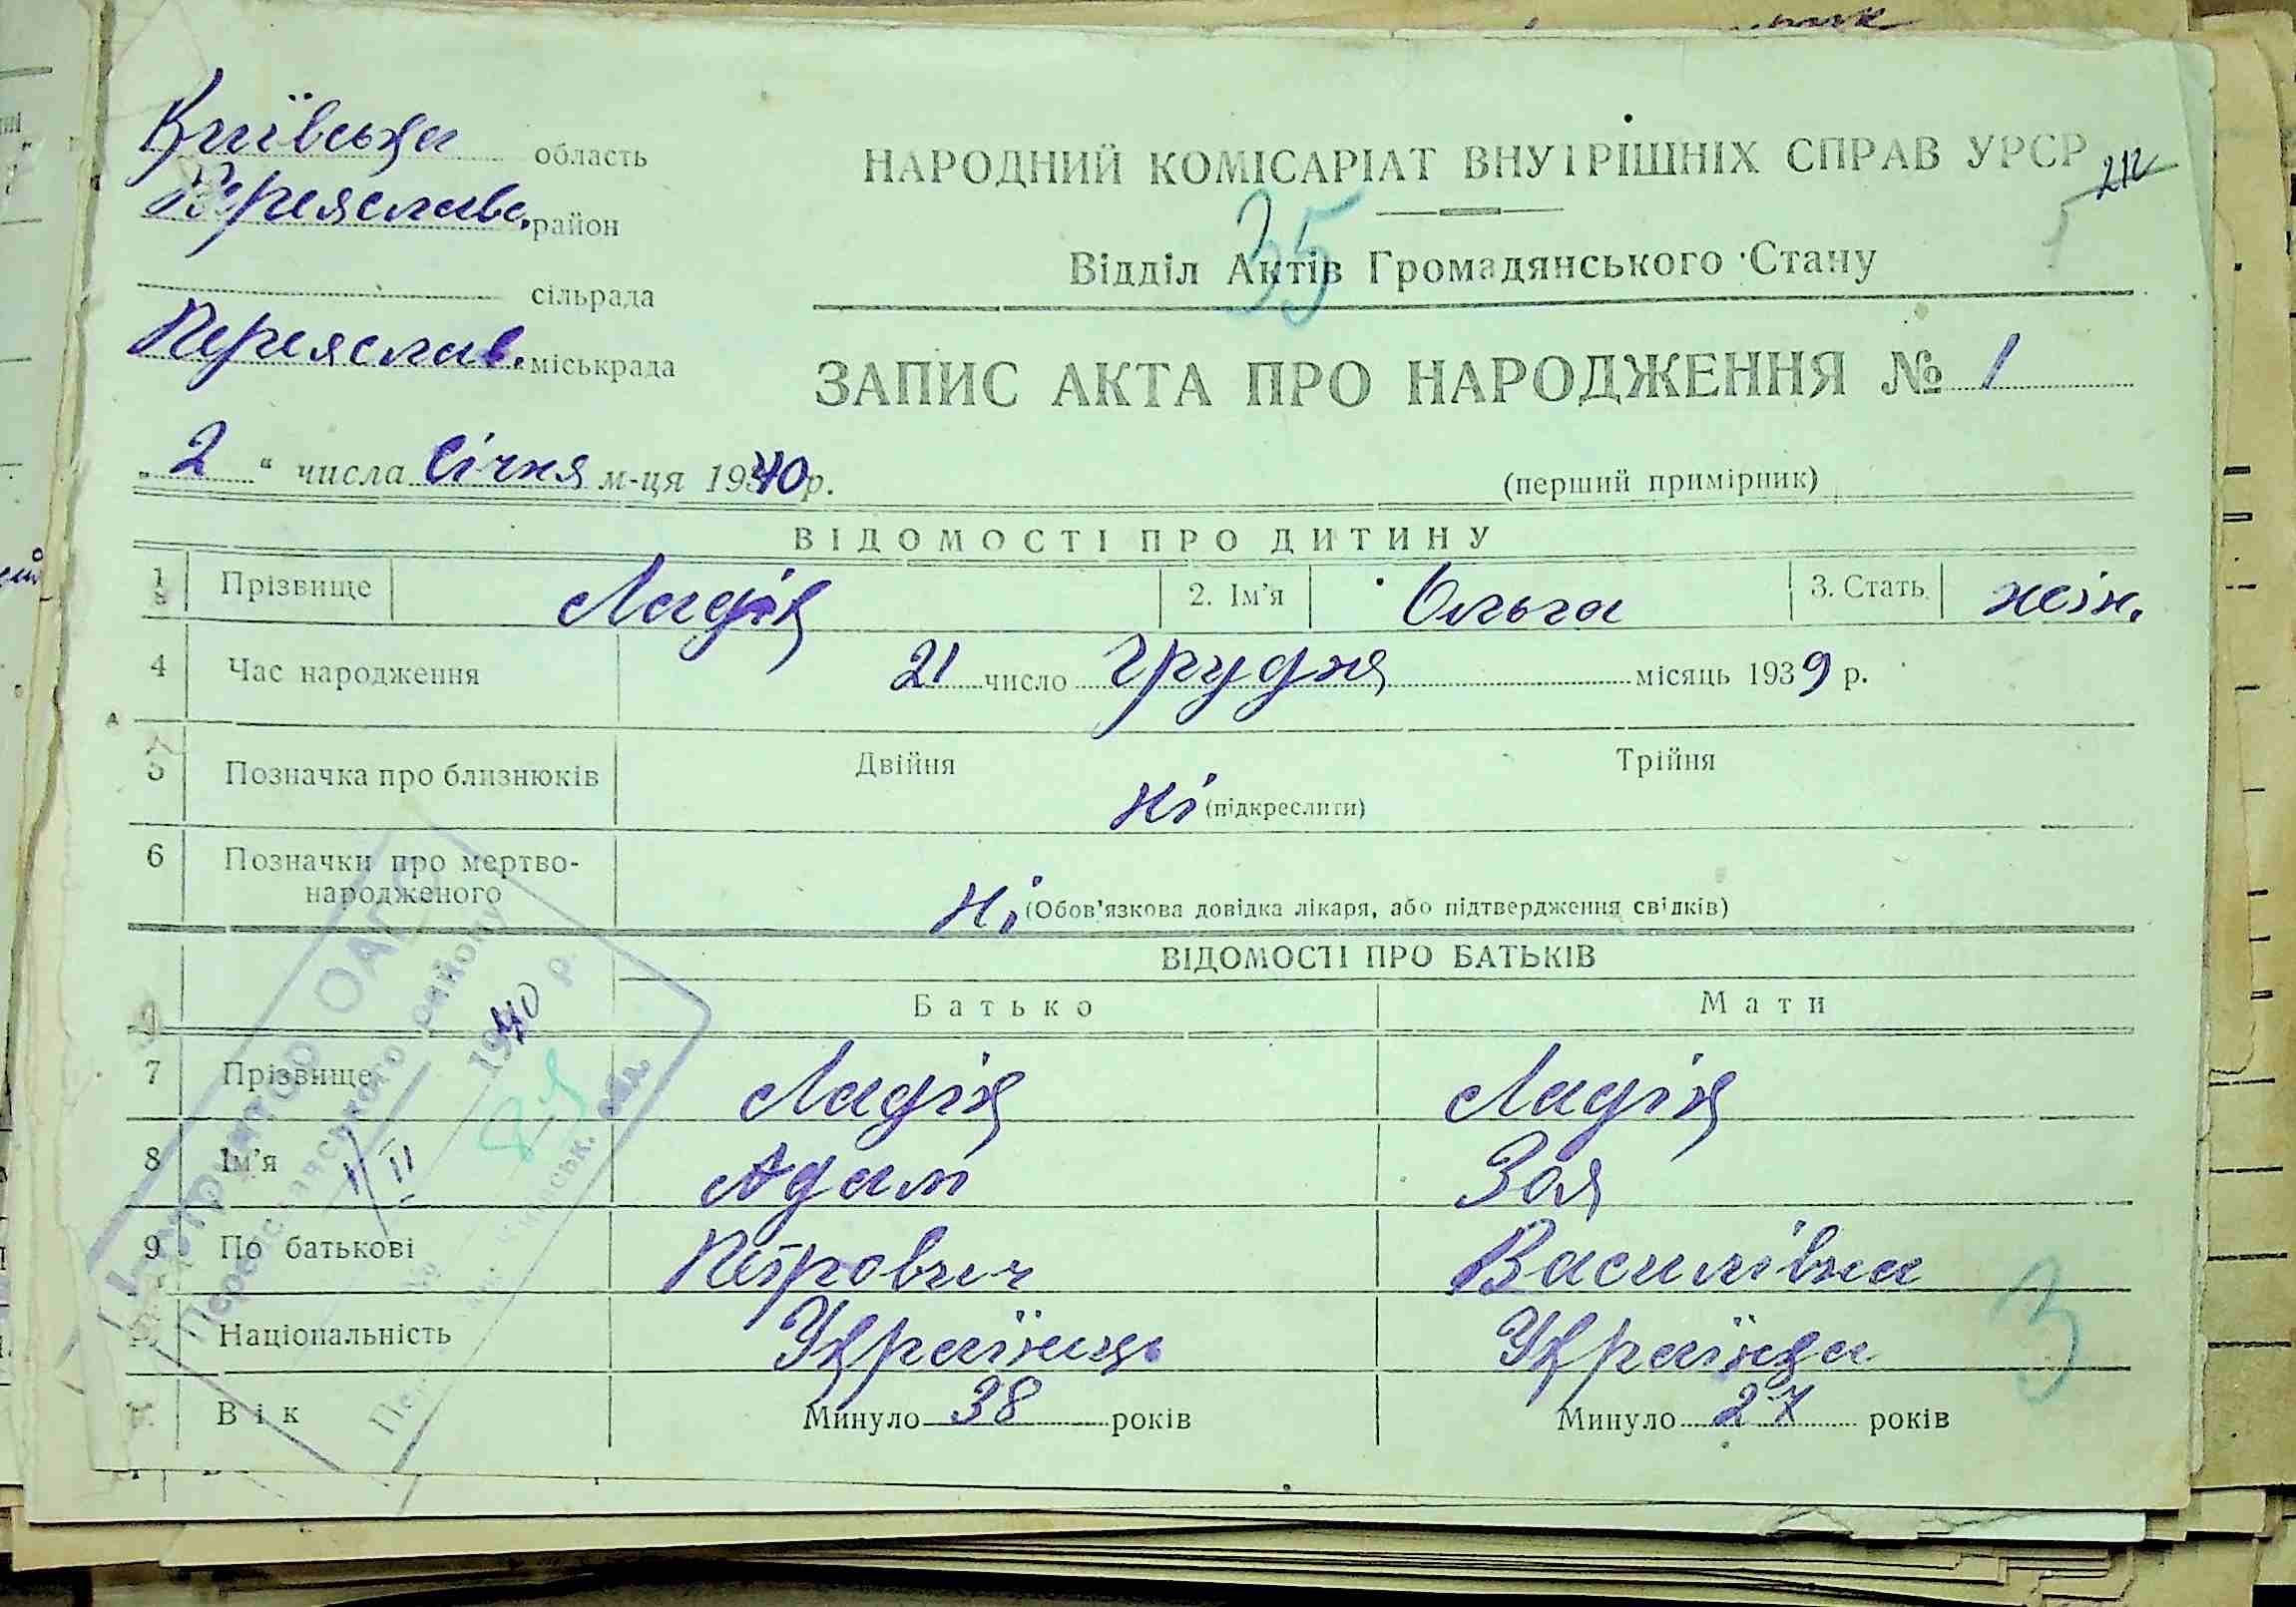 Київська область
Переяславс. район
сільрада
Переяслав. міськрада
НАРОДНИЙ КОМІСАРІАТ ВНУТРІШНІХ СПРАВ УРСР
35
Відділ Актів Громадянського Стану
ЗАПИС АКТА ПРО НАРОДЖЕННЯ № 1
„ 2 “ числа Січня м-ця 1940 р.
(перший примірник)
ВІДОМОСТІ ПРО ДИТИНУ
1 Прізвище 2. Ім'я Ольга 3. Стать жін.
4 Час народження 21 число грудня місяць 1939 р.
5 Позначка про близнюків Двійня Трійня
Ні (підкреслити)
6 Позначки про мертво-
народженого
Ні (Обов'язкова довідка лікаря, або підтвердження свідків)
ВІДОМОСТІ ПРО БАТЬКІВ
Батько Мати
7 Прізвище
8 Ім'я Адам Зоя
9 По батькові Петрович Василівна
Національність Українець Українка
Вік Минуло 38 років Минуло 27 років
району
1940 р.
3